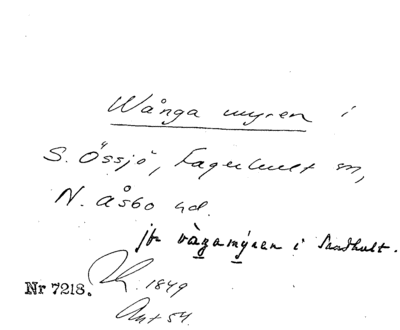 Wånga myren i
S. Össjö, Fagerhult sn,
N. Åsbo hd.
jfr vågamýren i Smedhult.
Nr 7218. 1849
Ant 54.